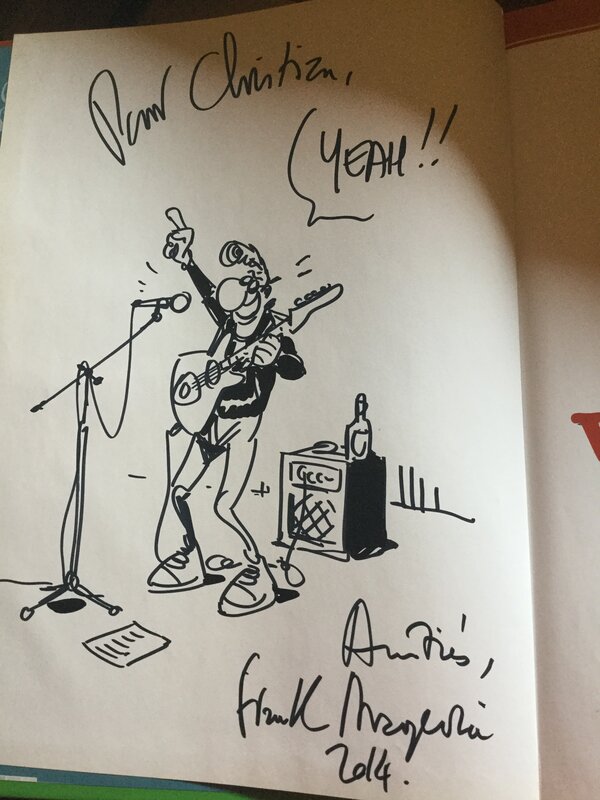 Pour Christian,
YEAH!!
Amitiés,
Frank Margerin
2014.